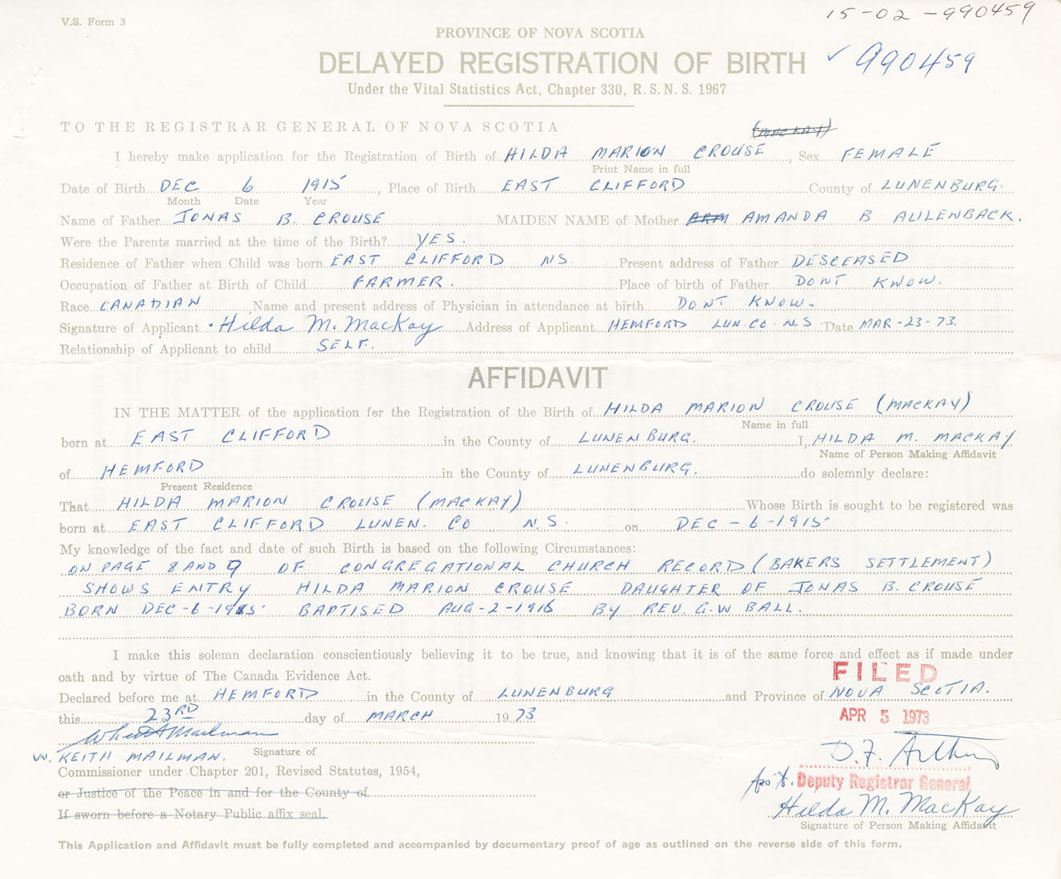 V.S. Form 3
15-02-990459
PROVINCE OF NOVA SCOTIA
DELAYED REGISTRATION OF BIRTH
✓ 990459
Under the Vital Statistics Act, Chapter 330, R.S.N.S. 1967
TO THE REGISTRAR GENERAL OF NOVA SCOTIA
(MACKAY)
I hereby make application for the Registration of Birth of HILDA MARION CROUSE, Sex FEMALE
Print Name in full
Date of Birth DEC 6 1915, Place of Birth EAST CLIFFORD County of LUNENBURG.
Month Date Year
Name of Father JONAS B. CROUSE MAIDEN NAME of Mother AMANDA B AULENBACK.
Were the Parents married at the time of the Birth? YES.
Residence of Father when Child was born EAST CLIFFORD NS Present address of Father DESCEASED
Occupation of Father at Birth of Child FARMER. Place of birth of Father DONT KNOW.
Race CANADIAN Name and present address of Physician in attendance at birth DONT KNOW.
Signature of Applicant Hilda M. MacKay Address of Applicant HEMFORD LUN. CO. N.S Date MAR-23-73.
Relationship of Applicant to child SELF.
AFFIDAVIT
IN THE MATTER of the application for the Registration of the Birth of HILDA MARION CROUSE (MACKAY)
Name in full
born at EAST CLIFFORD in the County of LUNENBURG. I, HILDA M. MACKAY
Name of Person Making Affidavit
of HEMFORD in the County of LUNENBURG. do solemnly declare:
Present Residence
That HILDA MARION CROUSE (MACKAY) Whose Birth is sought to be registered was
born at EAST CLIFFORD LUNEN. CO N.S. on DEC-6-1915
My knowledge of the fact and date of such Birth is based on the following Circumstances:
ON PAGE 8 AND 9 OF CONGREGATIONAL CHURCH RECORD (BAKERS SETTLEMENT)
SHOWS ENTRY HILDA MARION CROUSE DAUGHTER OF JONAS B. CROUSE
BORN DEC-6-1915 BAPTISED AUG-2-1916 BY REV. G.W BALL.
I make this solemn declaration conscientiously believing it to be true, and knowing that it is of the same force and effect as if made under
oath and by virtue of The Canada Evidence Act.
FILED
Declared before me at HEMFORD in the County of LUNENBURG and Province of NOVA SCOTIA.
this 23RD day of MARCH 1973
APR 5 1973
Mailman
W. KEITH MAILMAN.
Signature of
D.F. Arthur
Commissioner under Chapter 201, Revised Statutes, 1954,
Deputy Registrar General
or Justice of the Peace in and for the County of
Hilda M. MacKay
If sworn before a Notary Public affix seal.
Signature of Person Making Affidavit
This Application and Affidavit must be fully completed and accompanied by documentary proof of age as outlined on the reverse side of this form.